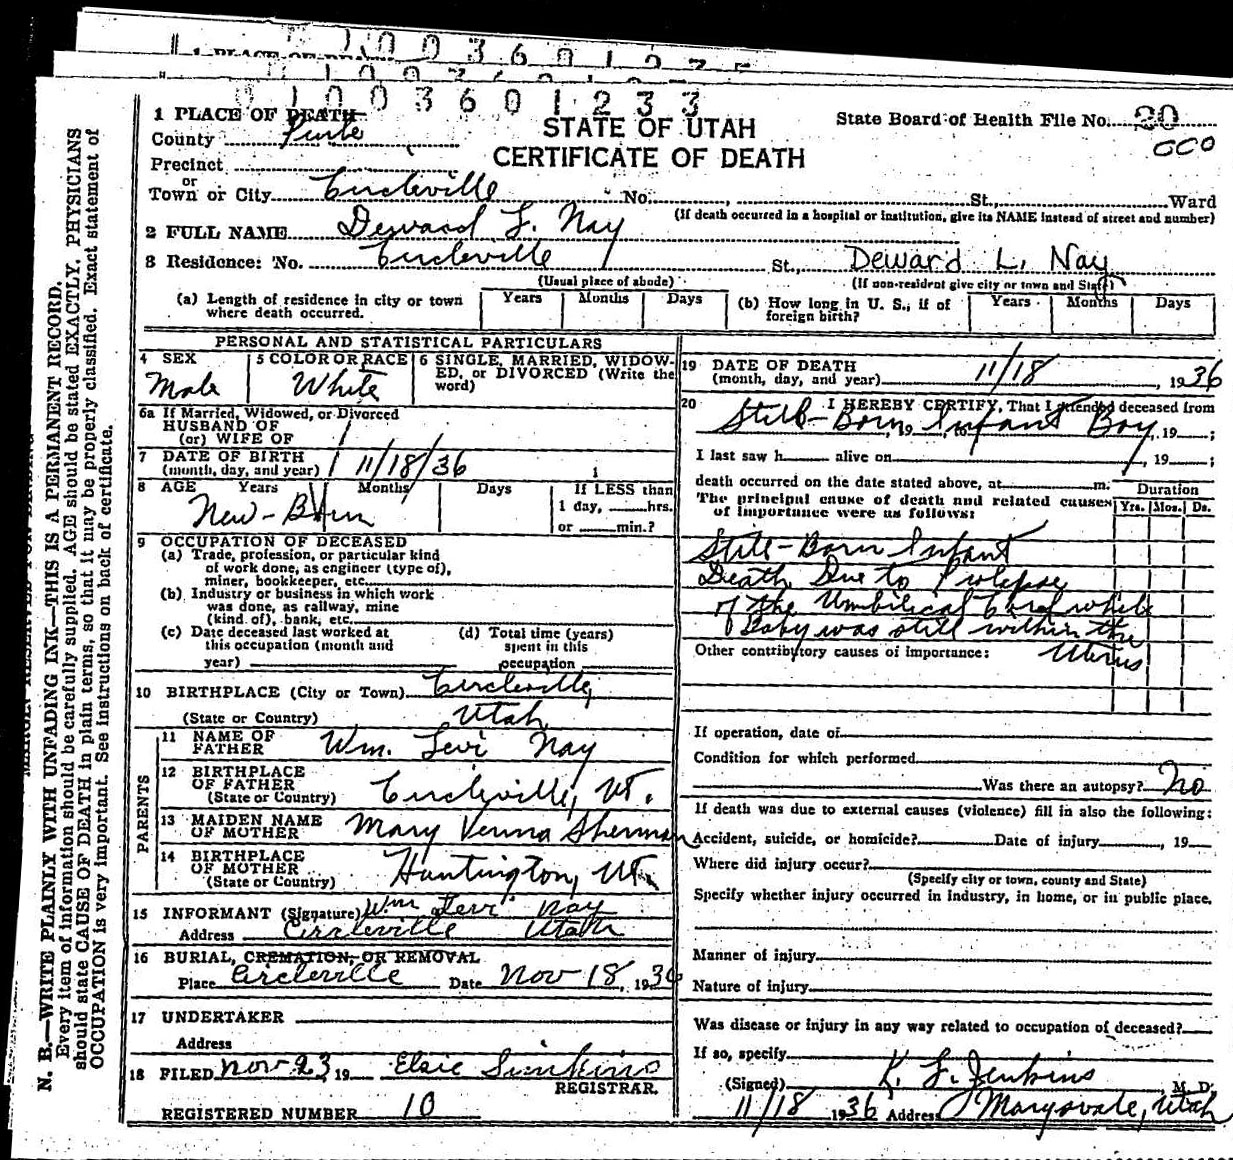 1 0 0 3 6 0 1 2 3 5
1 PLACE OF DEATH
1 0 0 3 6 0 1 2 3
0 1 0 0 3 6 0 1 2 3 3
1 PLACE OF DEATH
County Piute
Precinct
or
Town or City Circleville No. St., Ward
(If death occurred in a hospital or institution, give its NAME instead of street and number)
STATE OF UTAH
CERTIFICATE OF DEATH
State Board of Health File No. 20
CCO
2 FULL NAME Deward L. Nay
3 Residence: No. Circleville St., Deward L. Nay
(Usual place of abode) (If non-resident give city or town and State)
(a) Length of residence in city or town where death occurred. Years Months Days
(b) How long in U. S., if of foreign birth? Years Months Days
PERSONAL AND STATISTICAL PARTICULARS
4 SEX Male
5 COLOR OR RACE White
6 SINGLE, MARRIED, WIDOW-
ED, or DIVORCED (Write the
word)
6a If Married, Widowed, or Divorced
HUSBAND OF
(or) WIFE OF
7 DATE OF BIRTH
(month, day, and year) 11/18/36
8 AGE Years Months Days
New-Born
If LESS than
1 day, hrs.
or min.?
9 OCCUPATION OF DECEASED
(a) Trade, profession, or particular kind
of work done, as engineer (type of),
miner, bookkeeper, etc.
(b) Industry or business in which work
was done, as railway, mine
(kind of), bank, etc.
(c) Date deceased last worked at
this occupation (month and
year)
(d) Total time (years)
spent in this
occupation
10 BIRTHPLACE (City or Town) Circleville,
(State or Country) Utah
PARENTS
11 NAME OF
FATHER Wm. Levi Nay
12 BIRTHPLACE
OF FATHER
(State or Country) Circleville, Ut.
13 MAIDEN NAME
OF MOTHER Mary Verma Sherman
14 BIRTHPLACE
OF MOTHER
(State or Country) Huntington, Ut.
15 INFORMANT (Signature) Wm Levi Nay
Address Circleville Utah
16 BURIAL, CREMATION, OR REMOVAL
Place Circleville Date Nov 18, 1936
17 UNDERTAKER
Address
18 FILED Nov 23 19 Elsie
REGISTRAR.
REGISTERED NUMBER 10
19 DATE OF DEATH
(month, day, and year) 11/18, 1936
20 I HEREBY CERTIFY, That I attended deceased from
Still-Born Infant Boy, 19 , to , 19 ;
I last saw h alive on , 19 ;
death occurred on the date stated above, at m.
The principal cause of death and related causes
of importance were as follows:
Duration
Yrs. Mos. Ds.
Still-Born Infant
Death Due to Prolapse
of the Umbilical Cord while
Baby was still within the
Uterus
Other contributory causes of importance:
If operation, date of
Condition for which performed
Was there an autopsy? No
If death was due to external causes (violence) fill in also the following:
Accident, suicide, or homicide? Date of injury , 19
Where did injury occur?
(Specify city or town, county and State)
Specify whether injury occurred in industry, in home, or in public place.
Manner of injury
Nature of injury
Was disease or injury in any way related to occupation of deceased?
If so, specify
(Signed) K. L. Jenkins M. D.
11/18 1936 Address Marysvale, Utah
N. B.—WRITE PLAINLY WITH UNFADING INK—THIS IS A PERMANENT RECORD.
Every item of information should be carefully supplied. AGE should be stated EXACTLY. PHYSICIANS
should state CAUSE OF DEATH in plain terms, so that it may be properly classified. Exact statement of
OCCUPATION is very important. See instructions on back of certificate.